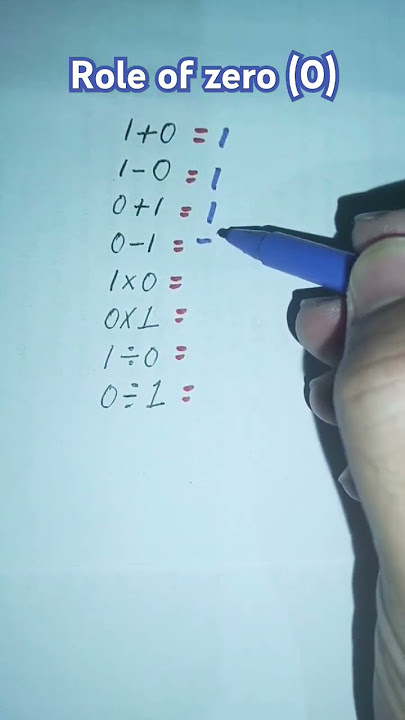 Role of zero (0)
1+0 = 1
1-0 = 1
0+1 = 1
0-1 = -
1×0 =
0×1 =
1÷0 =
0÷1 =